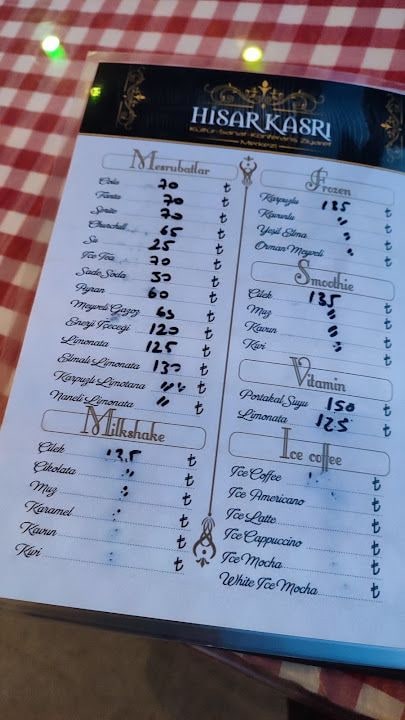 HISAR KASRI
Kültür-Sanat-Konferans Ziyaret
Merkezi
Mesrubatlar
Cola 70 ₺
Fanta 70 ₺
Sprite 70 ₺
Churchill 65 ₺
Su 25 ₺
Ice Tea 70 ₺
Sade Soda 50 ₺
Ayran 60 ₺
Meyveli Gazoz 65 ₺
Enerji İçeceği 120 ₺
Limonata 125 ₺
Elmalı Limonata 130 ₺
Karpuzlu Limotana " ₺
Naneli Limonata " ₺
Milkshake
Çilek 135 ₺
Çikolata " ₺
Muz " ₺
Karamel " ₺
Kavun " ₺
Kivi " ₺
Frozen
Karpuzlu 135 ₺
Kavunlu " ₺
Yeşil Elma " ₺
Orman Meyveli " ₺
Smoothie
Çilek 135 ₺
Muz " ₺
Kavun " ₺
Kivi " ₺
Vitamin
Portakal Suyu 150 ₺
Limonata 125 ₺
Ice coffee
Ice Coffee ₺
Ice Americano ₺
Ice Latte ₺
Ice Cappuccino ₺
Ice Mocha ₺
White Ice Mocha ₺